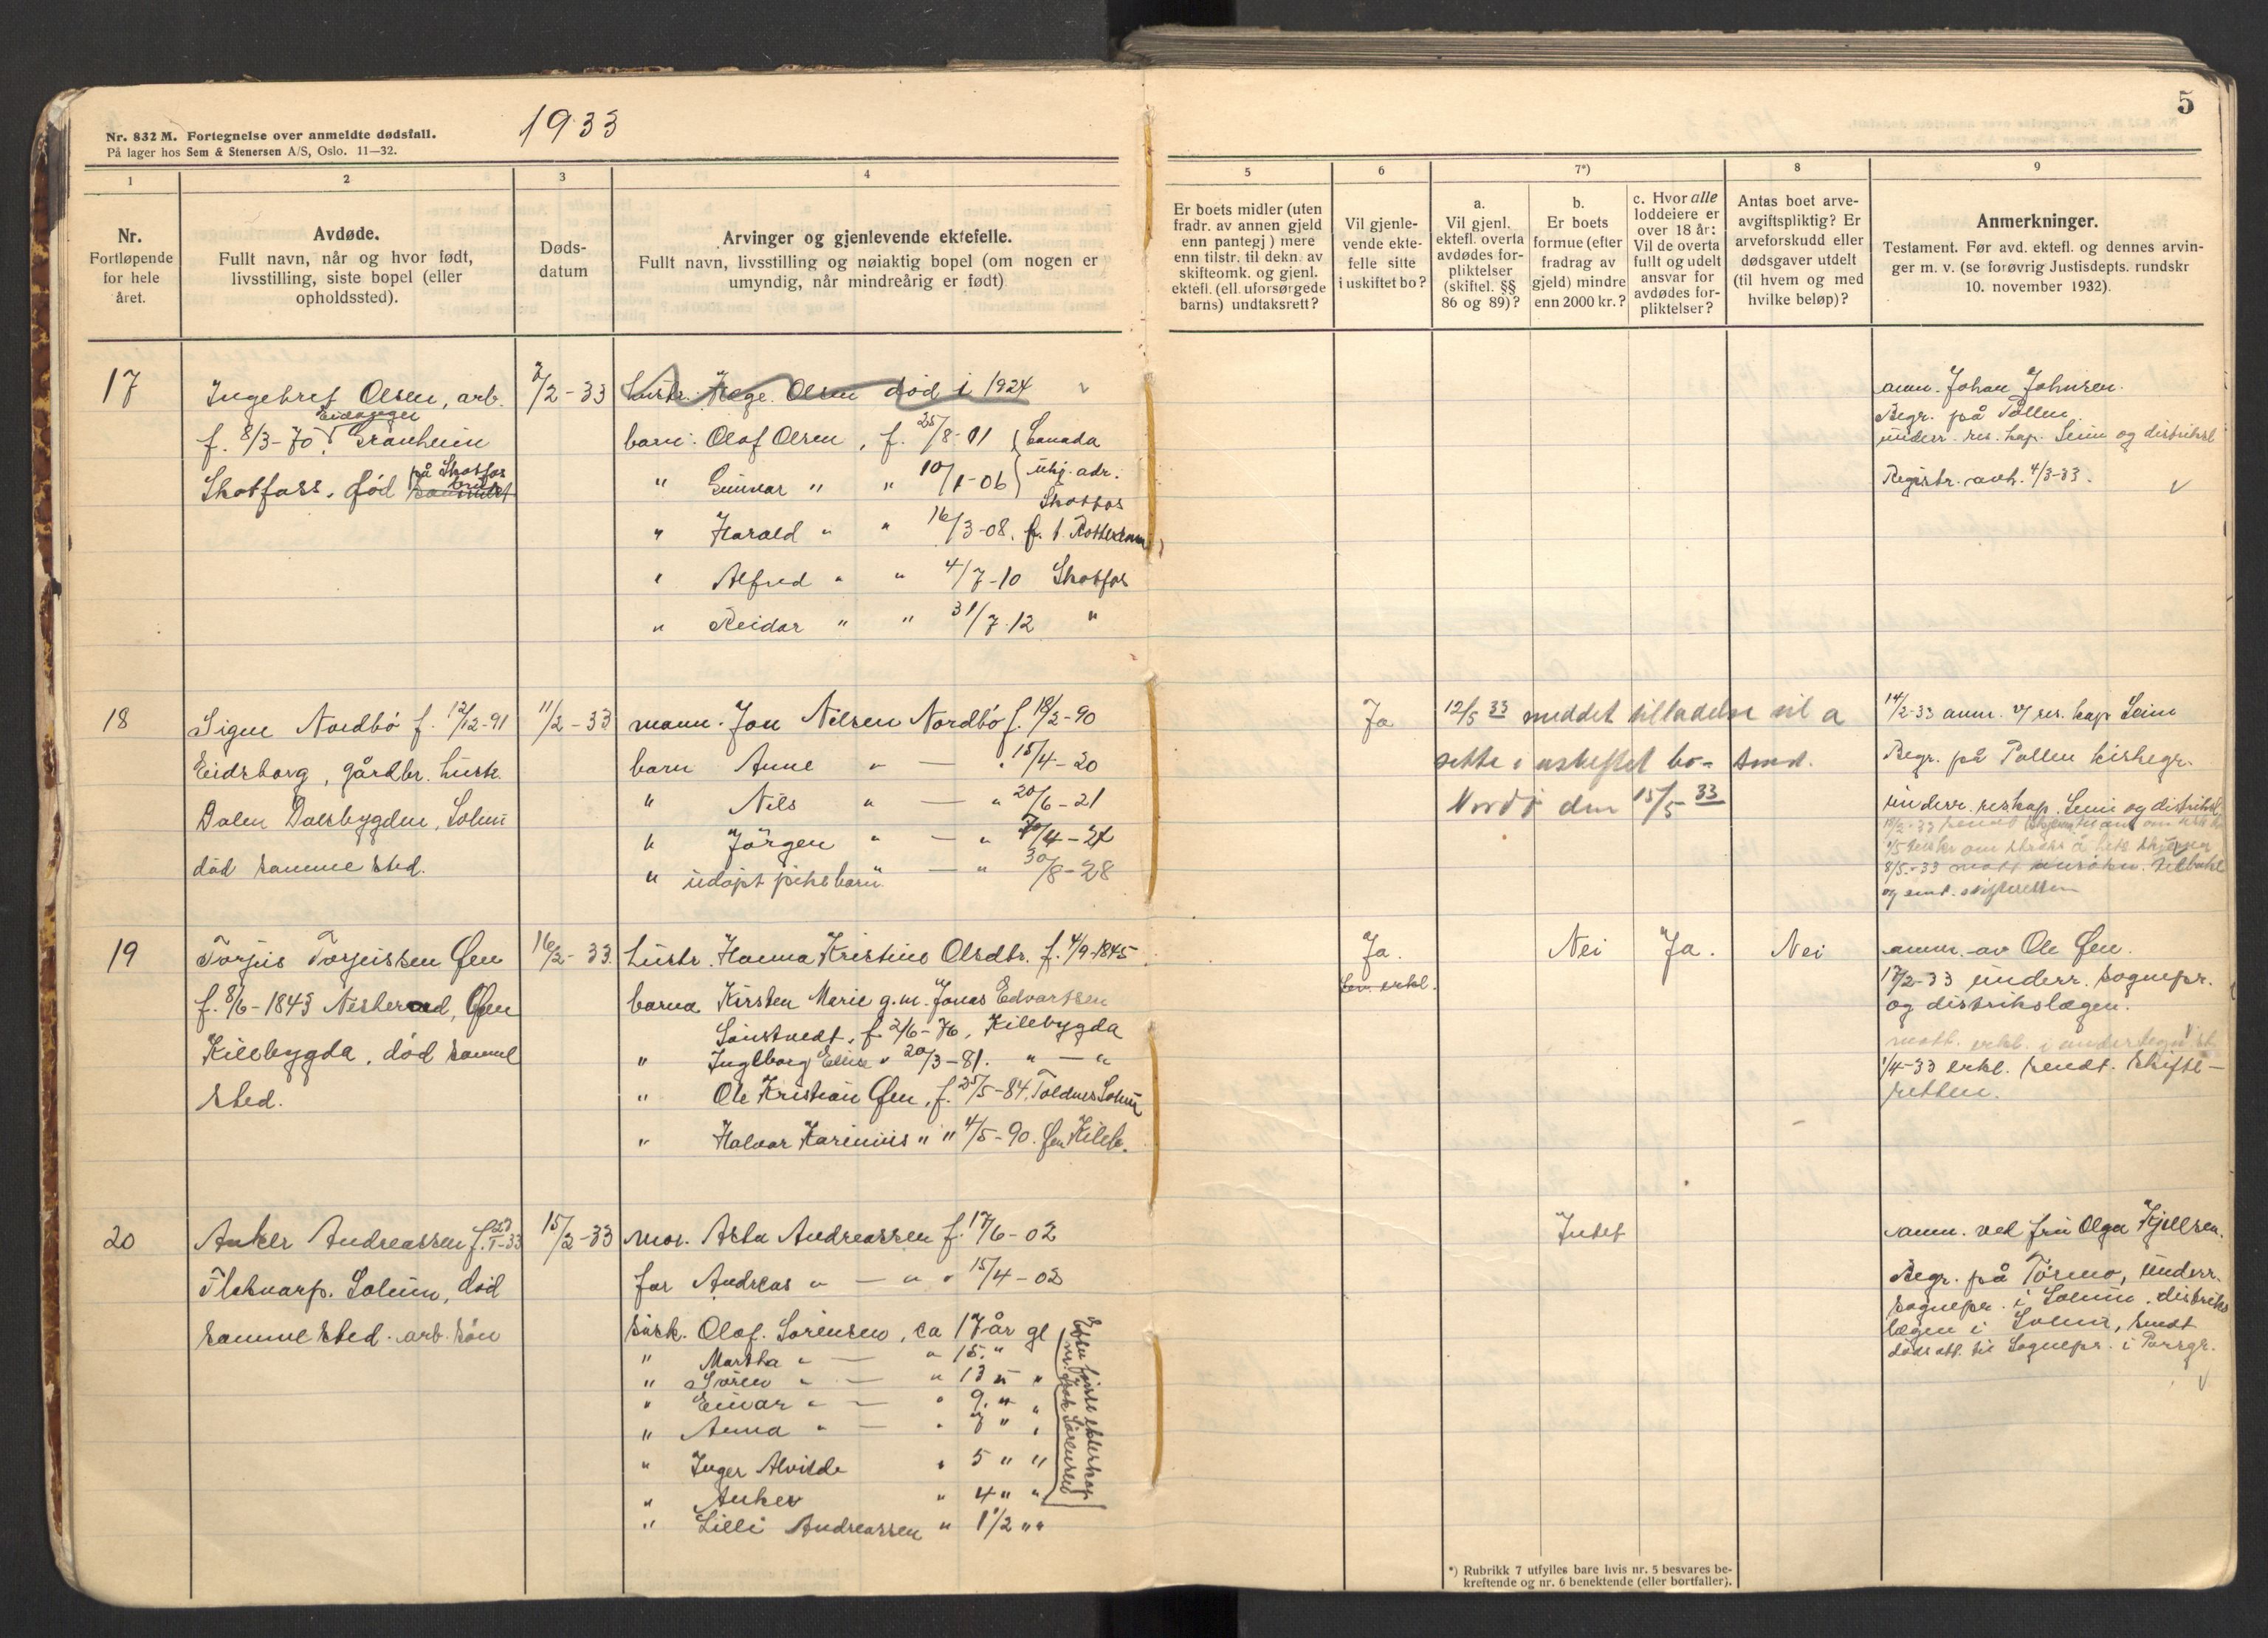 1933
5
Nr. 832 M. Fortegnelse over anmeldte dødsfall.
På lager hos Sem & Stenersen A/S, Oslo. 11—32.
1
2
3
4
5
6
7*)
8
9
Nr.
Fortløpende
for hele
året.
Avdøde.
Fullt navn, når og hvor født,
livsstilling, siste bopel (eller
opholdssted).
Døds-
datum
Arvinger og gjenlevende ektefelle.
Fullt navn, livsstilling og nøiaktig bopel (om nogen er
umyndig, når mindreårig er født)
Er boets midler (uten
fradr. av annen gjeld
enn pantegj) mere
enn tilstr. til dekn. av
skifteomk. og gjenl.
ektefl. (ell. uforsørgede
barns) undtaksrett?
Vil gjenle-
vende ekte-
felle sitte
i uskiftet bo?
a.
Vil gjenl.
ektefl. overta
avdødes for-
pliktelser
(skiftel. §§
86 og 89)?
b.
Er boets
formue (efter
fradrag av
gjeld) mindre
enn 2000 kr.?
c. Hvor alle
loddeiere er
over 18 år:
Vil de overta
fullt og udelt
ansvar for
avdødes for-
pliktelser?
Antas boet arve-
avgiftspliktig? Er
arveforskudd eller
dødsgaver utdelt
(til hvem og med
hvilke beløp)?
Anmerkninger.
Testament. Før avd. ektefl. og dennes arvin-
ger m. v. (se forøvrig Justisdepts. rundskr
10. november 1932).
17
Ingebret Olsen, arb.
f. 8/3-70, Granheim
på Skotfos
Skotfoss. død
7/2-33
Hustr. Hege. Olsen død i 1924
barn: Olaf Olsen, f. 25/8-01 Canada
" Gunnar " " 10/1-06 ukj. adr.
Skotfos
" Harald " " 16/3-08. f. t. Rotterdam
" Alfred " " 4/7-10 Skotfos
" Reidar " " 31/7-12 "
anm. Johan Johnsen.
Begr. på Pollen
underr. res. kap. Seim og distriktsl
Registr. avh. 4/3-33.
18
Signe Nordbó f. 12/12-91
Eidsborg, gårdbr. hustr.
Dalen Dalsbygden, Solum
död samme sted.
11/2-33
mann. Jon Nilsen Nordbó f. 18/2-90
barn Anne " — " 15/4-20
" Nils " — " 20/6-21
" Jörgen " — " /4-24
" udöpt pikebarn " — " 30/8-28
Ja
12/5 33 meddet tilladelse til a
sette i uskiftet bo- Send.
Nordbö den 15/5 33
14/2-33 anm. v/ res. kap Seim
Begr. på Pollen kirkegr.
underr. reskap. Seim og distriktsl
8/5-33 mott ansökn. tilbake
og sent. skifteretten
19
Torjus Torjussen Øen
f. 8/6-1843 Nesherad, Øen
Kilebygda, död samme
sted.
16/2-33.
hustr. Hanna Kristine Olsdtr. f. 4/9-1845
barna Kirsten Marie g.m. Jonas Edvartsen
Sönstvedt, f. 2/6-76, Kilebygda
" Ingeborg Eline " 20/3-81. " — "
" Ole Kristian Øen, f. 25/5-84, Toldnes Solum
" Halvor Karinius " " 4/5-90. Øen Kileb.
Ja.
Sen. erkl.
Nei
Ja.
Nei
anm. av Ole Øen.
17/2-33 underr. sognepr.
og distrikslægen.
mott. erkl. i undertegn. st.
1/4-33 erkl. sendt. skifte-
retten.
20
Anker Andreassen f. 23/1-33
Flakvarp. Solum, död
samme sted. arb. sön
15/2-33
mor. Asta Andreassen f. 17/6-02
far Andreas " — " " 15/4-02
sösk. Olaf. Sörensen, ca 17 år gl
" Martha " — " 15. "
" Sören " — " 13 " "
" Einar " — " 9. " "
" Anna " — " 7 " "
" Inger Alvilde " 5 " "
" Anker " 4 " "
" Lilli Andreassen " 1 1/2 " "
Intet
anm. ved fru Olga Kjellsen.
Begr. på Törmo, underr.
sognepr. i Solum. distrikts
lægen i Solum, sendt
dödsatt. til Sognepr. i Porsgr.
*) Rubrikk 7 utfylles bare hvis nr. 5 besvares be-
kreftende og nr. 6 benektende (eller bortfaller).